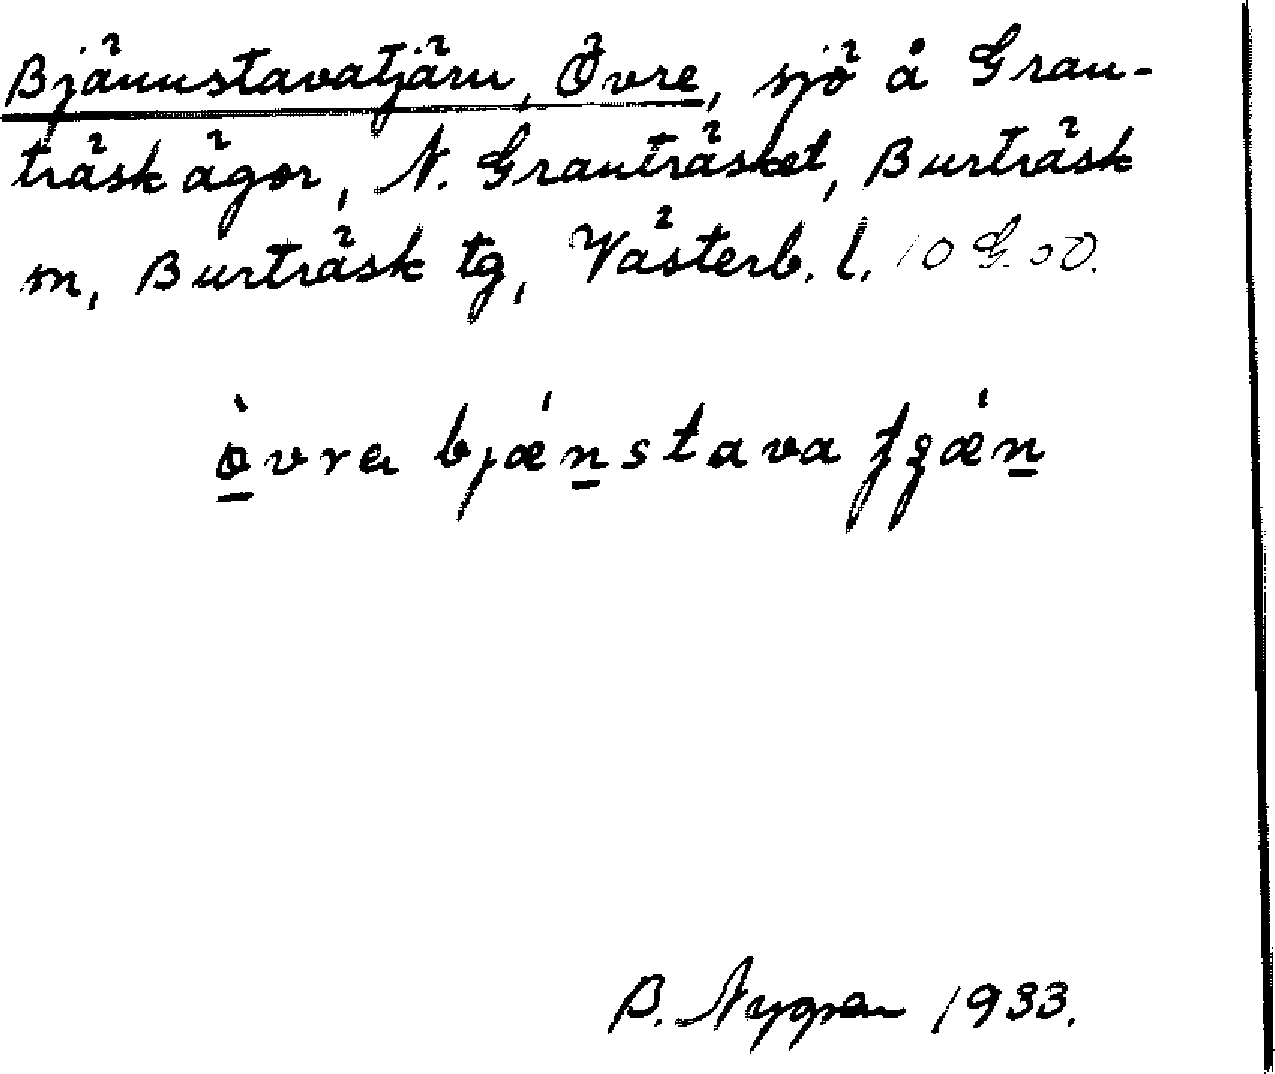 Bjännstavatjärn, Övre, sjö å Gran-
träsk ägor, N. Granträsket, Burträsk
m, Burträsk tg, Västerb. l. 10 G. 00.
òvra bjǽnstava tjǽn
B. Nygren 1933.